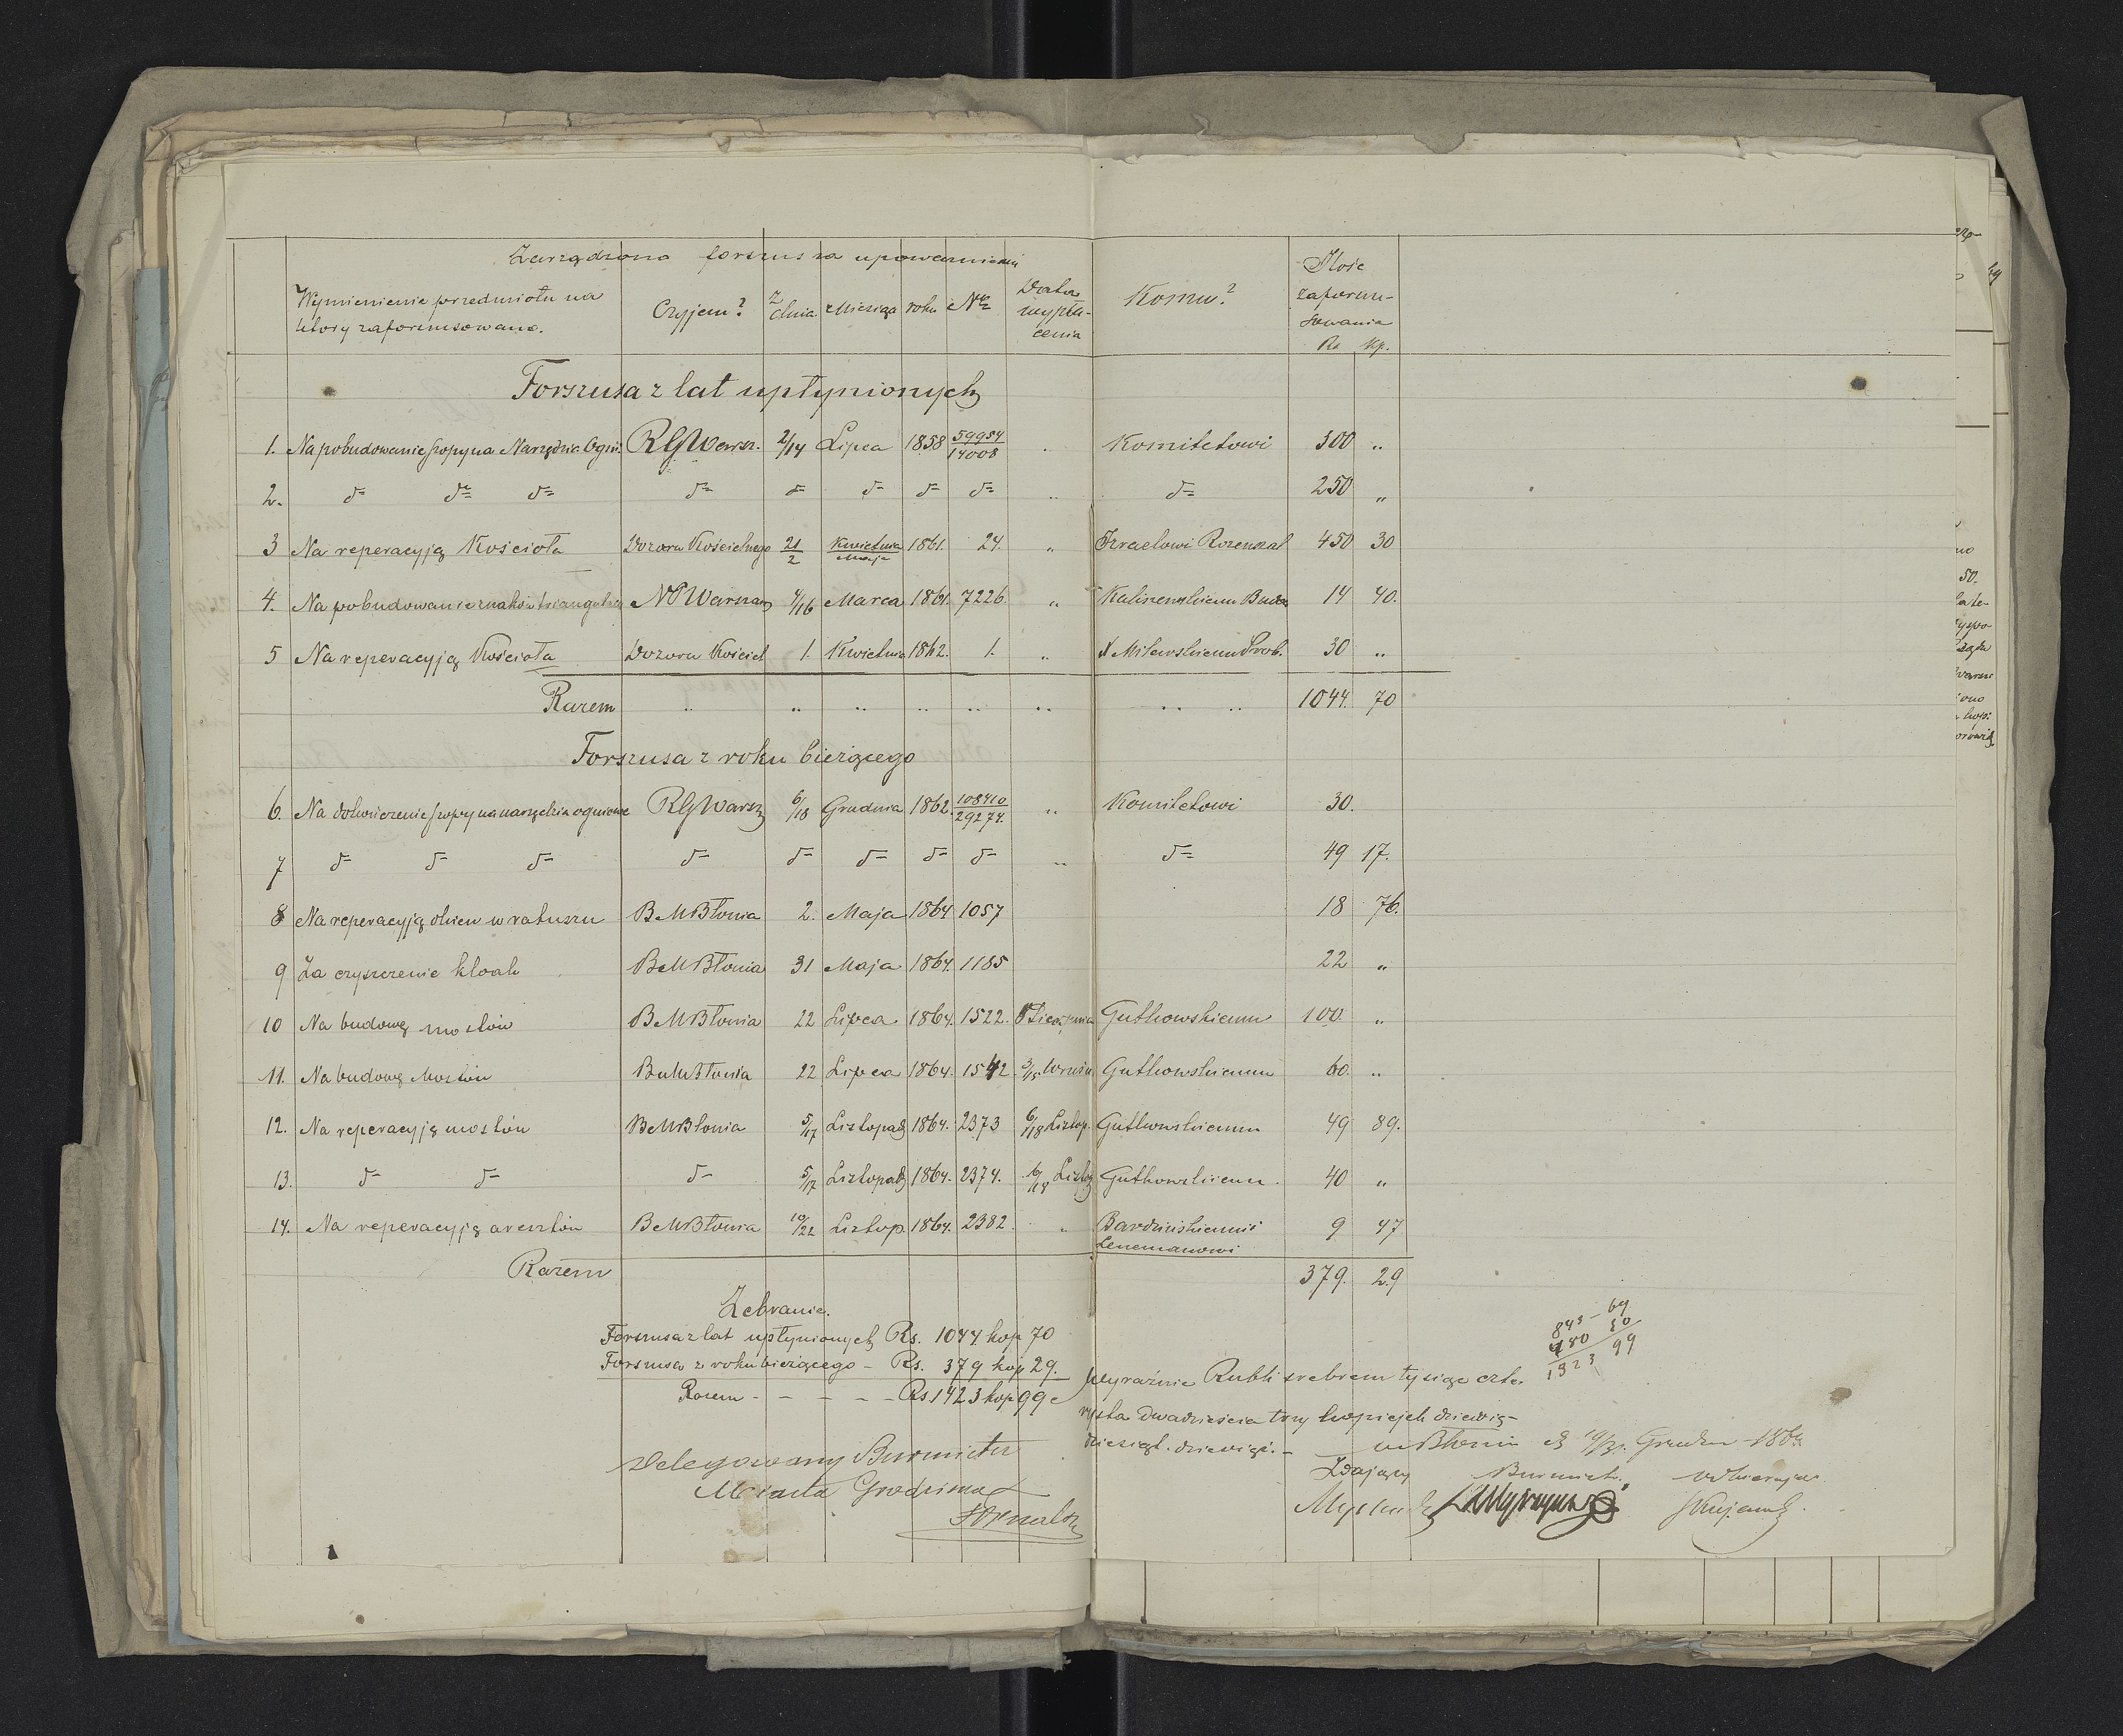 Zarządzono forszus za upoważnieniem
Wymienienie przedmiotu na
który zaforszusowano.
Czyjem?
z dnia
Miesiąca
roku
No
Data
wypła-
cenia
Komu?
Ilość
zaforszu-
sowania
Rs kp.
Forszusa z lat upłynionych
1. Na pobudowanie szopy na Narzędzia Ogni: RGWarsz. 2/14 Lipca 1858 59954/14008 Komitetowi 300 „
2. d= d= d= d= d= d= d= d= „ d= 250 „
3 Na reperacyją Kościoła Dozoru Kościelnego 21/2 Kwietnia/Maja 1861. 24. „ Izraelowi Rozensal 450 30
4. Na pobudowanie znaków triangular NWarszaw 4/16 Marca 1861. 7226. „ Kaliszewskiemu Budo 14 40.
5 Na reperacyją Kościoła Dozoru Kościel 1. Kwietnia 1862. 1. „ X Milewskiemu Prob. 30 „
Razem „ „ „ „ „ „ „ „ 1044. 70
Forszusa z roku bieżącego
6. Na dokończenie szopy na narzędzia ogniowe RGWarsz 6/18 Grudnia 1862. 108410/29274. „ Komitetowi 30.
7 d= d= d= d= d= d= d= d= „ d= 49 17.
8 Na reperacyją okien w ratuszu BMBłonia 2. Maja 1864 1057 18 76.
9 Za czyszczenie kloak BMBłonia 31 Maja 1864. 1185 22 „
10 Na budowę mostów BMBłonia 22 Lipca 1864. 1522. Sierpnia Gutkowskiemu 100. „
11. Na budowę Mostów BMBłonia 22 Lipca 1864. 1542 3/15 Wrześn Gutkowskiemu 60. „
12. Na reperacyją mostów BMBłonia 5/17 Listopad 1864. 2373 6/18 Listop. Gutkowskiemu 49 89.
13. d= d= d= 5/17 Listopad 1864. 2374. 6/18 Listop Gutkowskiemu 40 „
14. Na reperacyją aresztów BMBłonia 10/22 Listop. 1864. 2382. „ Bardzińskiemu i 9 47
Lenemanowi
Razem 379. 29
Zebranie.
Forszusa z lat upłynionych Rs. 1044 kop 70
Forszusa z roku bieżącego – Rs. 379 kop 29.
Razem - - - - Rs 1423 kop 99
843 – 69
480 30
1323 99
Wyraźnie Rubli srebrem tysiąc czte-
rysta dwadzieścia trzy kopiejek dziewięć-
dziesiąt dziewięć. – w Błoniu d 19/31. Grudnia 1864
Zdający Burmistr. Odbierający
Delegowany Burmistrz
Miasta Grodziska